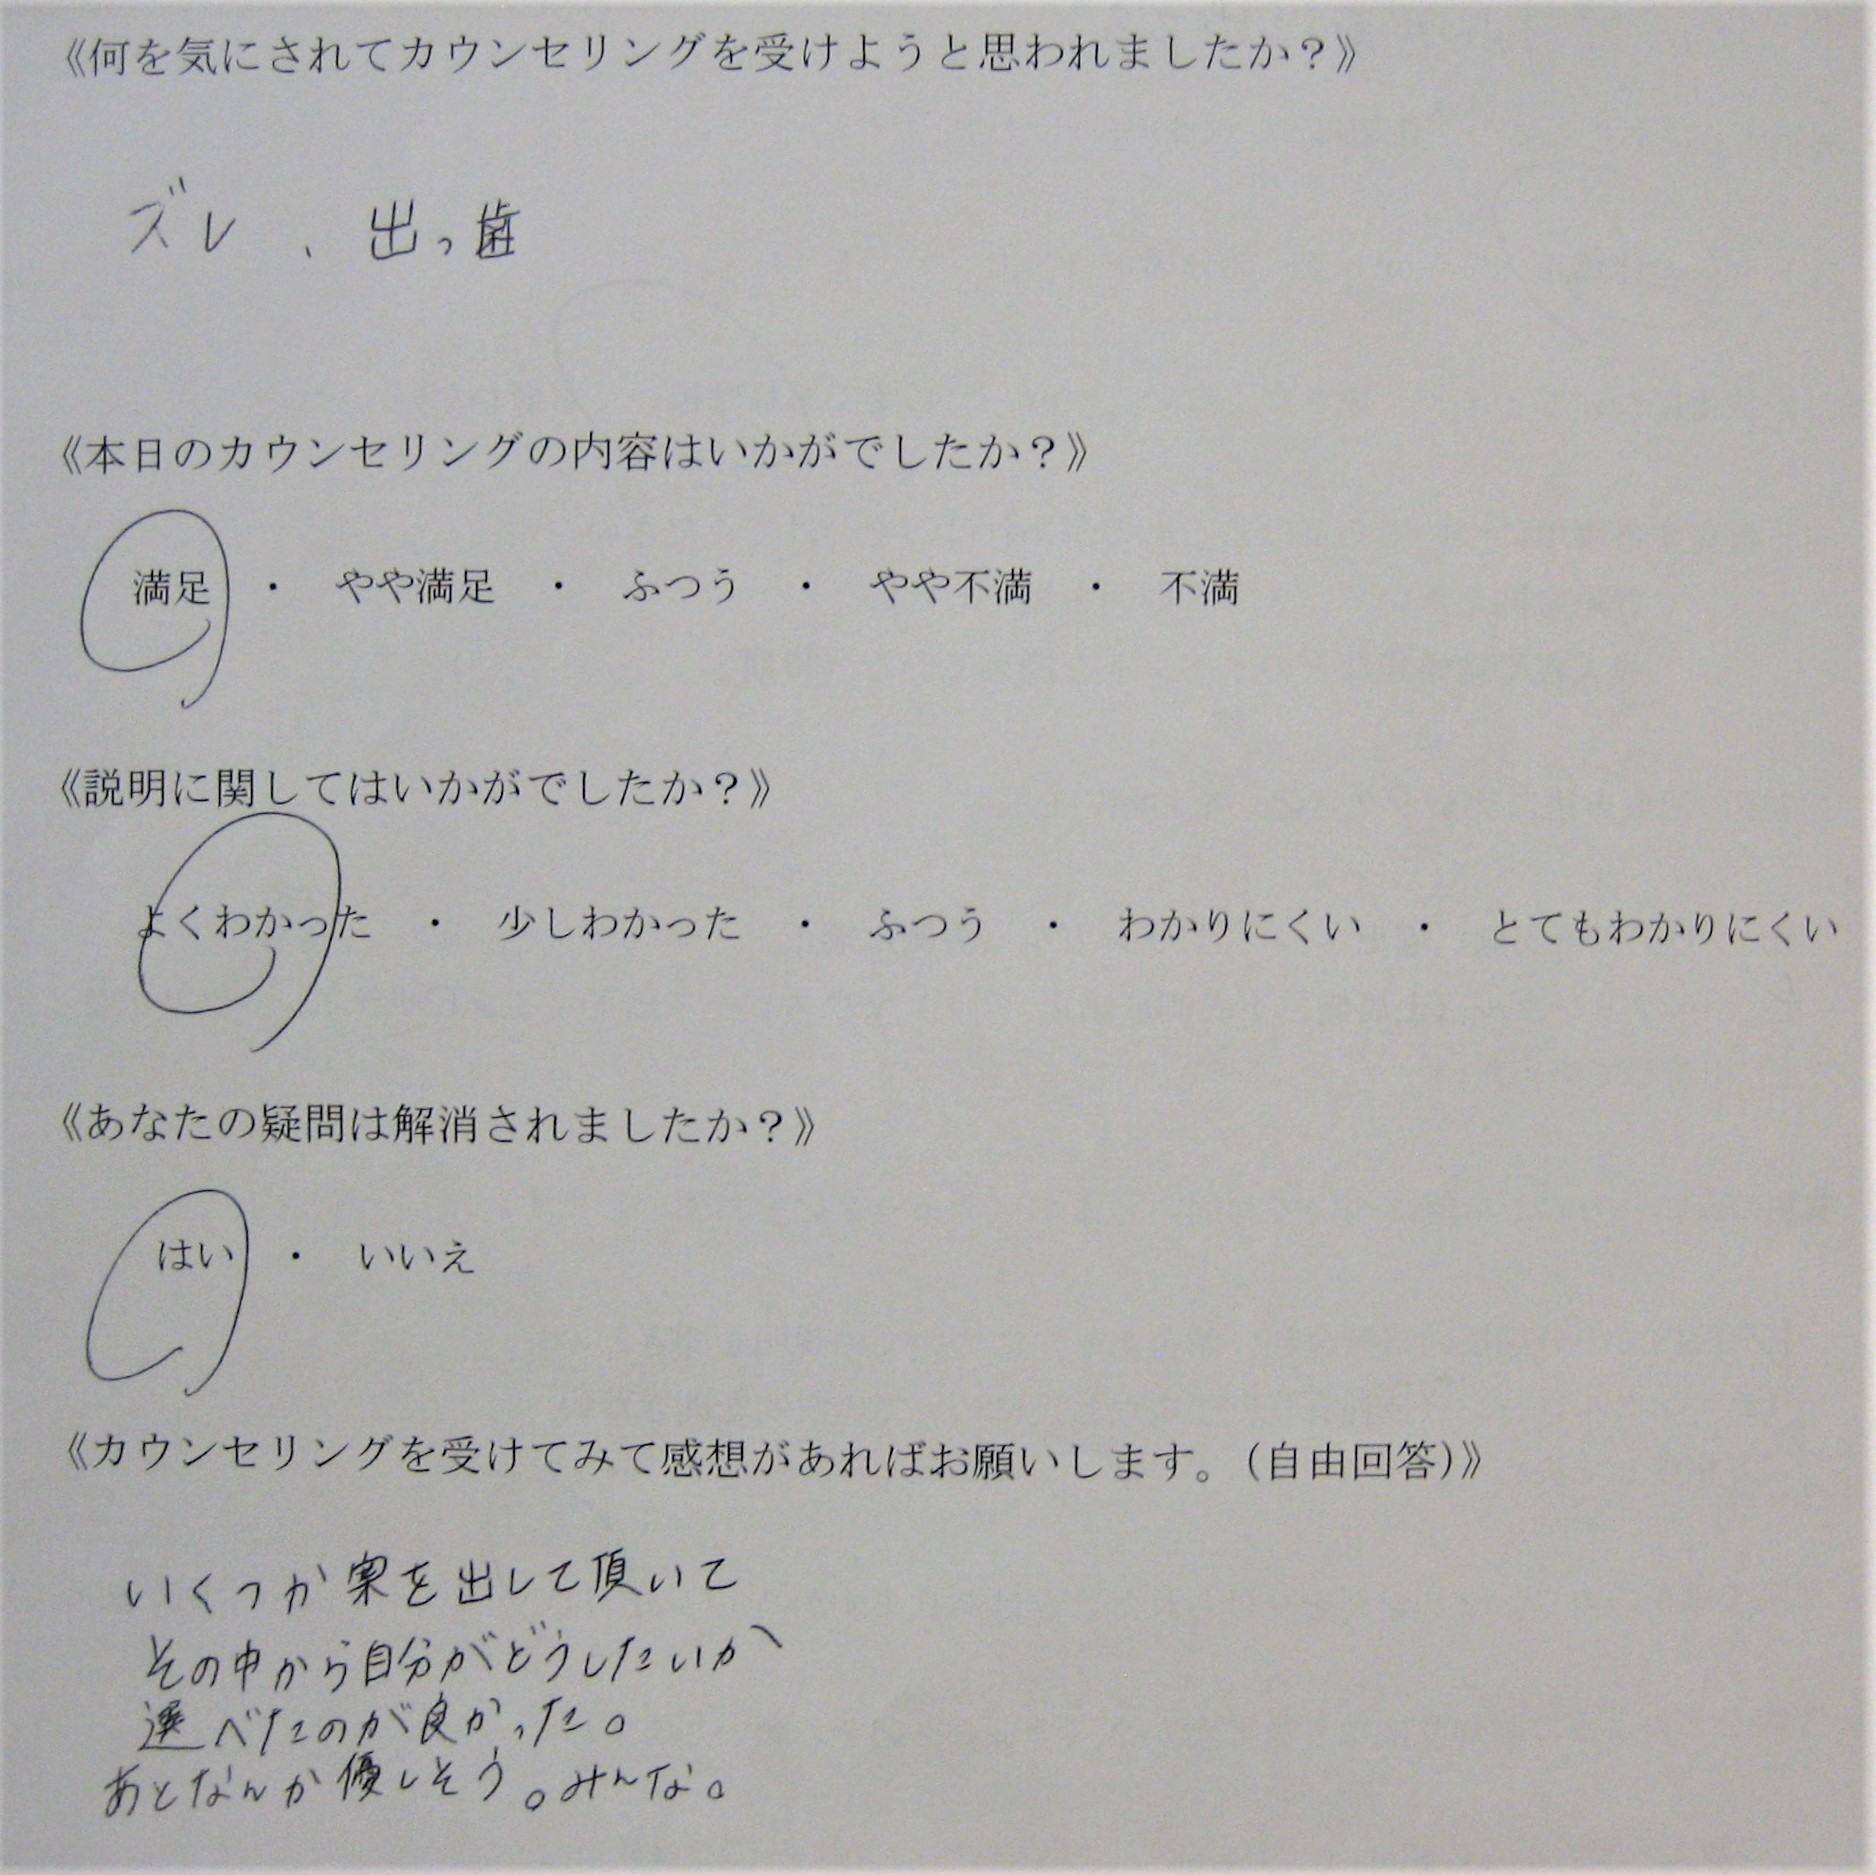 《何を気にされてカウンセリングを受けようと思われましたか？》
ズレ、出っ歯
《本日のカウンセリングの内容はいかがでしたか？》
満足 ・ やや満足 ・ ふつう ・ やや不満 ・ 不満
《説明に関してはいかがでしたか？》
よくわかった ・ 少しわかった ・ ふつう ・ わかりにくい ・ とてもわかりにくい
《あなたの疑問は解消されましたか？》
はい ・ いいえ
《カウンセリングを受けてみて感想があればお願いします。（自由回答）》
いくつか案を出して頂いて
その中から自分がどうしたいか
選べたのが良かった。
あとなんか優しそう。みんな。